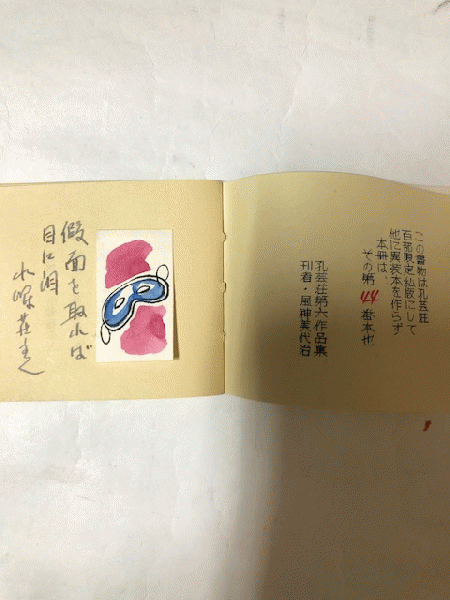 この書物は孔芸荘
百部限定私版にして
他に異装本を作らず
本冊は、
その第 44 番本也
孔芸荘第六作品集
刊者・風神美代治
假面を取れば
目に泪
水曜荘主人